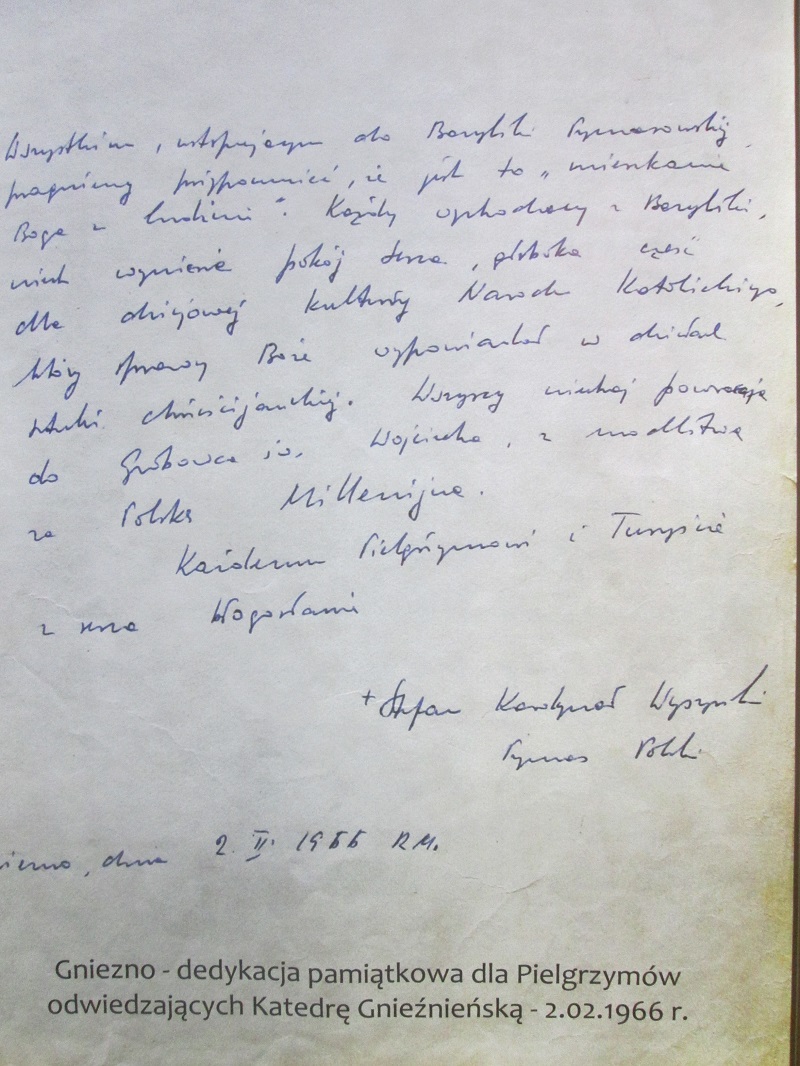 Wszystkim, wstępującym do Bazyliki Prymasowskiej
pragniemy przypomnieć, że jest to „mieszkanie
Boga z ludźmi". Każdy wychodzący z Bazyliki,
niech wyniesie pokój serca, głęboką cześć
dla dziejowej kultury Narodu Katolickiego,
który sprawy Boże wypowiadał w dziełach
sztuki chrześcijańskiej. Wszyscy niechaj powracają
do Grobowca św. Wojciecha, z modlitwą
za Polskę Millenijną.
Każdemu Pielgrzymowi i Turyście
z serca błogosławię
+ Stefan Kardynał Wyszyński
Prymas Polski
dnia 2. II. 1966 R.M.
Gniezno - dedykacja pamiątkowa dla Pielgrzymów
odwiedzających Katedrę Gnieźnieńską - 2.02.1966 r.